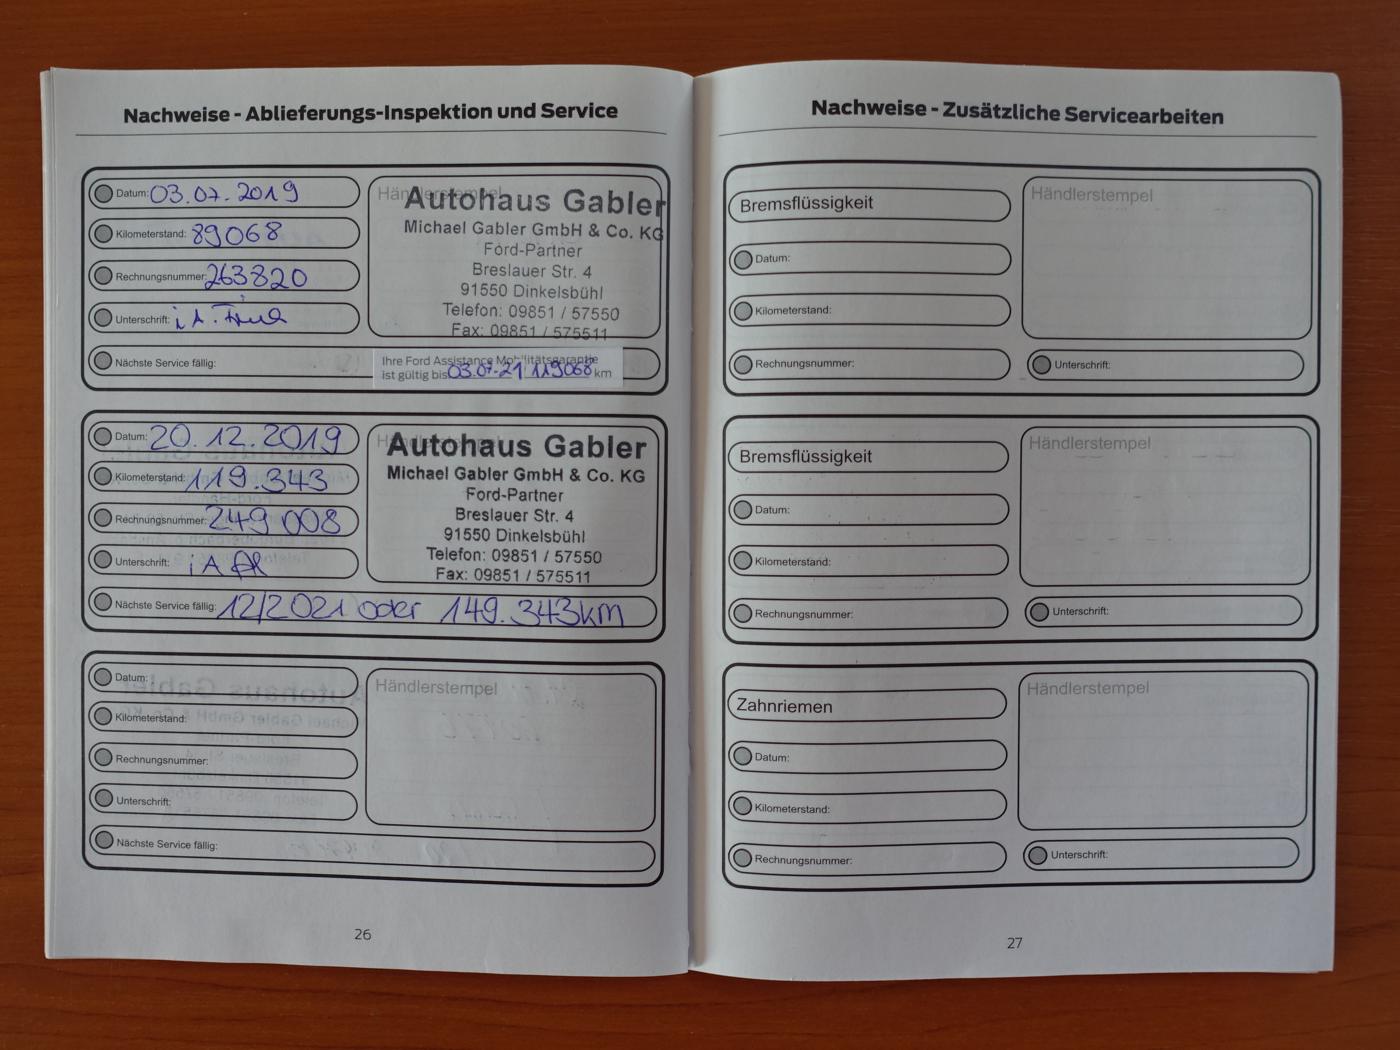 Nachweise - Ablieferungs-Inspektion und Service
Datum: 03.07.2019
Kilometerstand: 89068
Rechnungsnummer: 263820
Unterschrift: i.A.
Händlerstempel
Autohaus Gabler
Michael Gabler GmbH & Co. KG
Ford-Partner
Breslauer Str. 4
91550 Dinkelsbühl
Telefon: 09851 / 57550
Fax: 09851 / 575511
Nächste Service fällig:
Ihre Ford Assistance Mobilitätsgarantie
ist gültig bis 03.07.21 119068 km
Datum: 20.12.2019
Kilometerstand: 119.343
Rechnungsnummer: 249 008
Unterschrift: i A
Händlerstempel
Autohaus Gabler
Michael Gabler GmbH & Co. KG
Ford-Partner
Breslauer Str. 4
91550 Dinkelsbühl
Telefon: 09851 / 57550
Fax: 09851 / 575511
Nächste Service fällig: 12/2021 oder 149.343km
Datum:
Kilometerstand:
Rechnungsnummer:
Unterschrift:
Händlerstempel
Nächste Service fällig:
26
Nachweise - Zusätzliche Servicearbeiten
Bremsflüssigkeit
Datum:
Kilometerstand:
Rechnungsnummer:
Händlerstempel
Unterschrift:
Bremsflüssigkeit
Datum:
Kilometerstand:
Rechnungsnummer:
Händlerstempel
Unterschrift:
Zahnriemen
Datum:
Kilometerstand:
Rechnungsnummer:
Händlerstempel
Unterschrift:
27